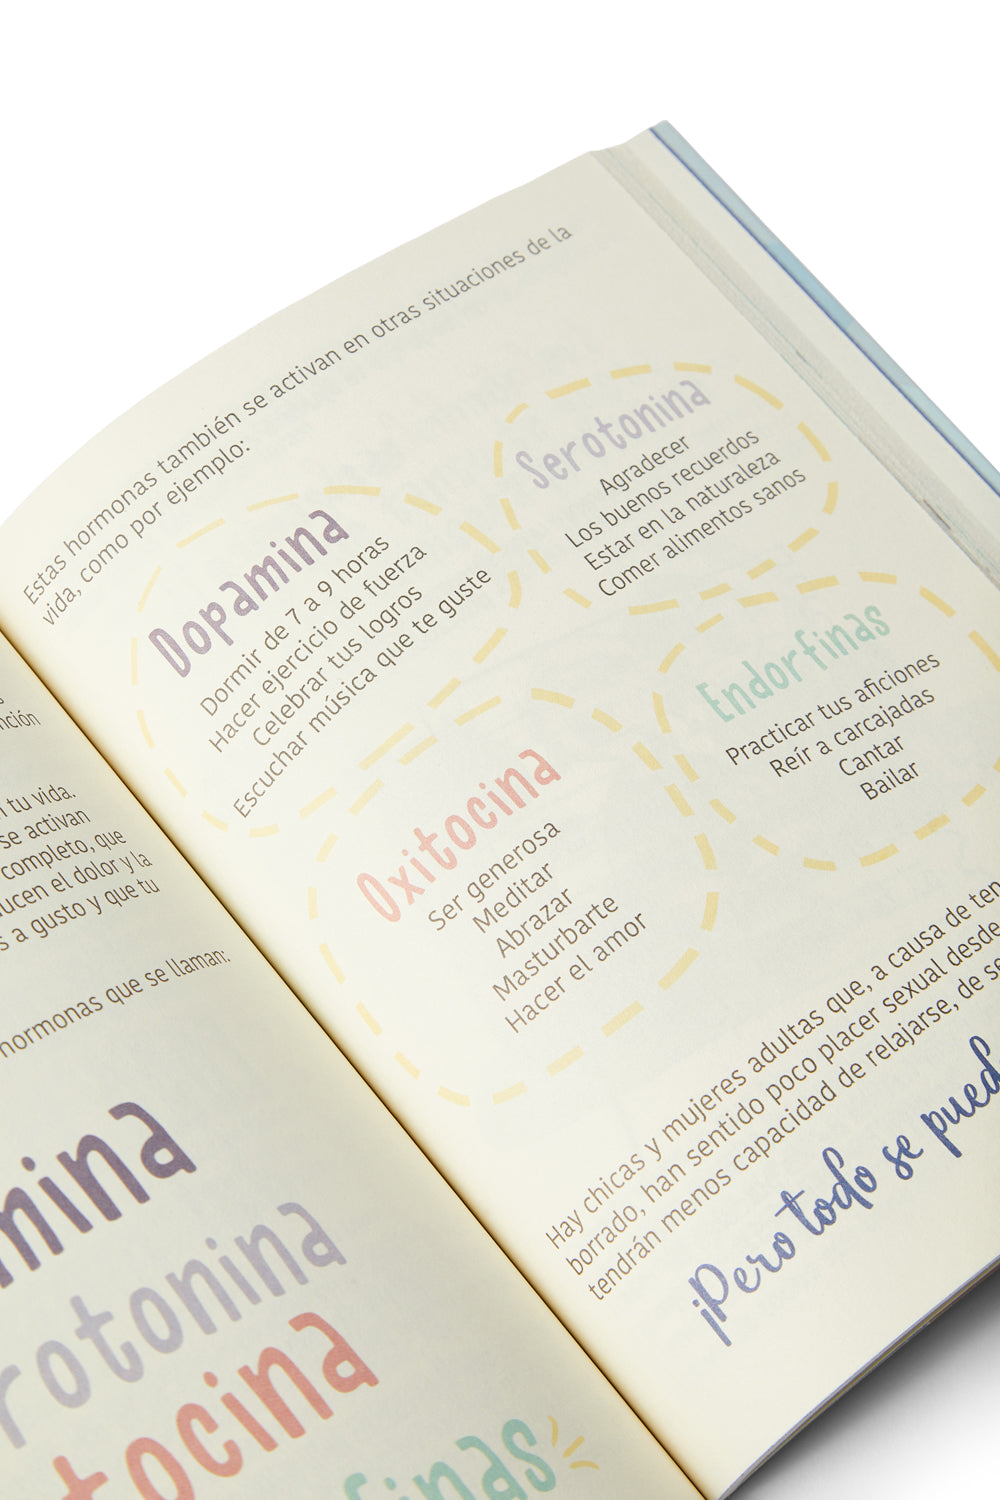 nción
n tu vida.
se activan
completo, que
ucen el dolor y la
s a gusto y que tu
hormonas que se llaman:
mina
rotonina
tocina
finas
Estas hormonas también se activan en otras situaciones de la
vida, como por ejemplo:
Dopamina
Dormir de 7 a 9 horas
Hacer ejercicio de fuerza
Celebrar tus logros
Escuchar música que te guste
Serotonina
Agradecer
Los buenos recuerdos
Estar en la naturaleza
Comer alimentos sanos
Oxitocina
Ser generosa
Meditar
Abrazar
Masturbarte
Hacer el amor
Endorfinas
Practicar tus aficiones
Reír a carcajadas
Cantar
Bailar
Hay chicas y mujeres adultas que, a causa de ten
borrado, han sentido poco placer sexual desde
tendrán menos capacidad de relajarse, de se
¡Pero todo se pued